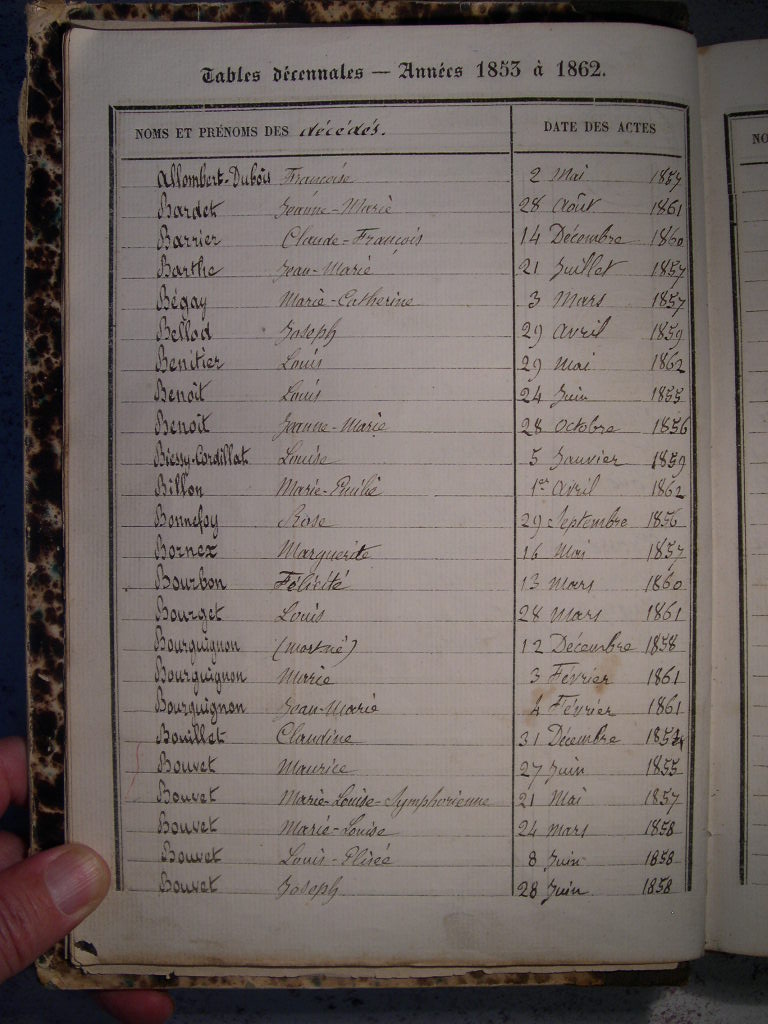 Tables décennales — Années 1853 à 1862.
NOMS ET PRÉNOMS DES décédés. DATE DES ACTES
NO
Allombert-Dubois Françoise 2 Mai 1857
Bardet Jeanne-Marie 28 Août 1861
Barrier Claude-François 14 Décembre 1860
Barthe Jean-Marie 21 Juillet 1857
Bégay Marie-Catherine 3 Mars 1857
Bellod Joseph 29 Avril 1859
Benitier Louis 29 Mai 1862
Benoît Louis 24 Juin 1855
Benoît Jeanne-Marie 28 Octobre 1856
Biessy-Cordillat Louise 5 Janvier 1859
Billon Marie-Emilie 1er Avril 1862
Bonnefoy Rose 29 Septembre 1856
Bornex Marguerite 16 Mai 1857
Bourbon Félicité 13 Mars 1860
Bourget Louis 28 Mars 1861
Bourguignon (mort né) 12 Décembre 1858
Bourguignon Marie 3 Février 1861
Bourguignon Jean-Marie 4 Février 1861
Bouillet Claudine 31 Décembre 1854
Bouvet Maurice 27 Juin 1855
Bouvet Marie-Louise-Symphorienne 21 Mai 1857
Bouvet Marie-Louise 24 Mars 1858
Bouvet Louis-Elisée 8 Juin 1858
Bouvet Joseph 28 Juin 1858